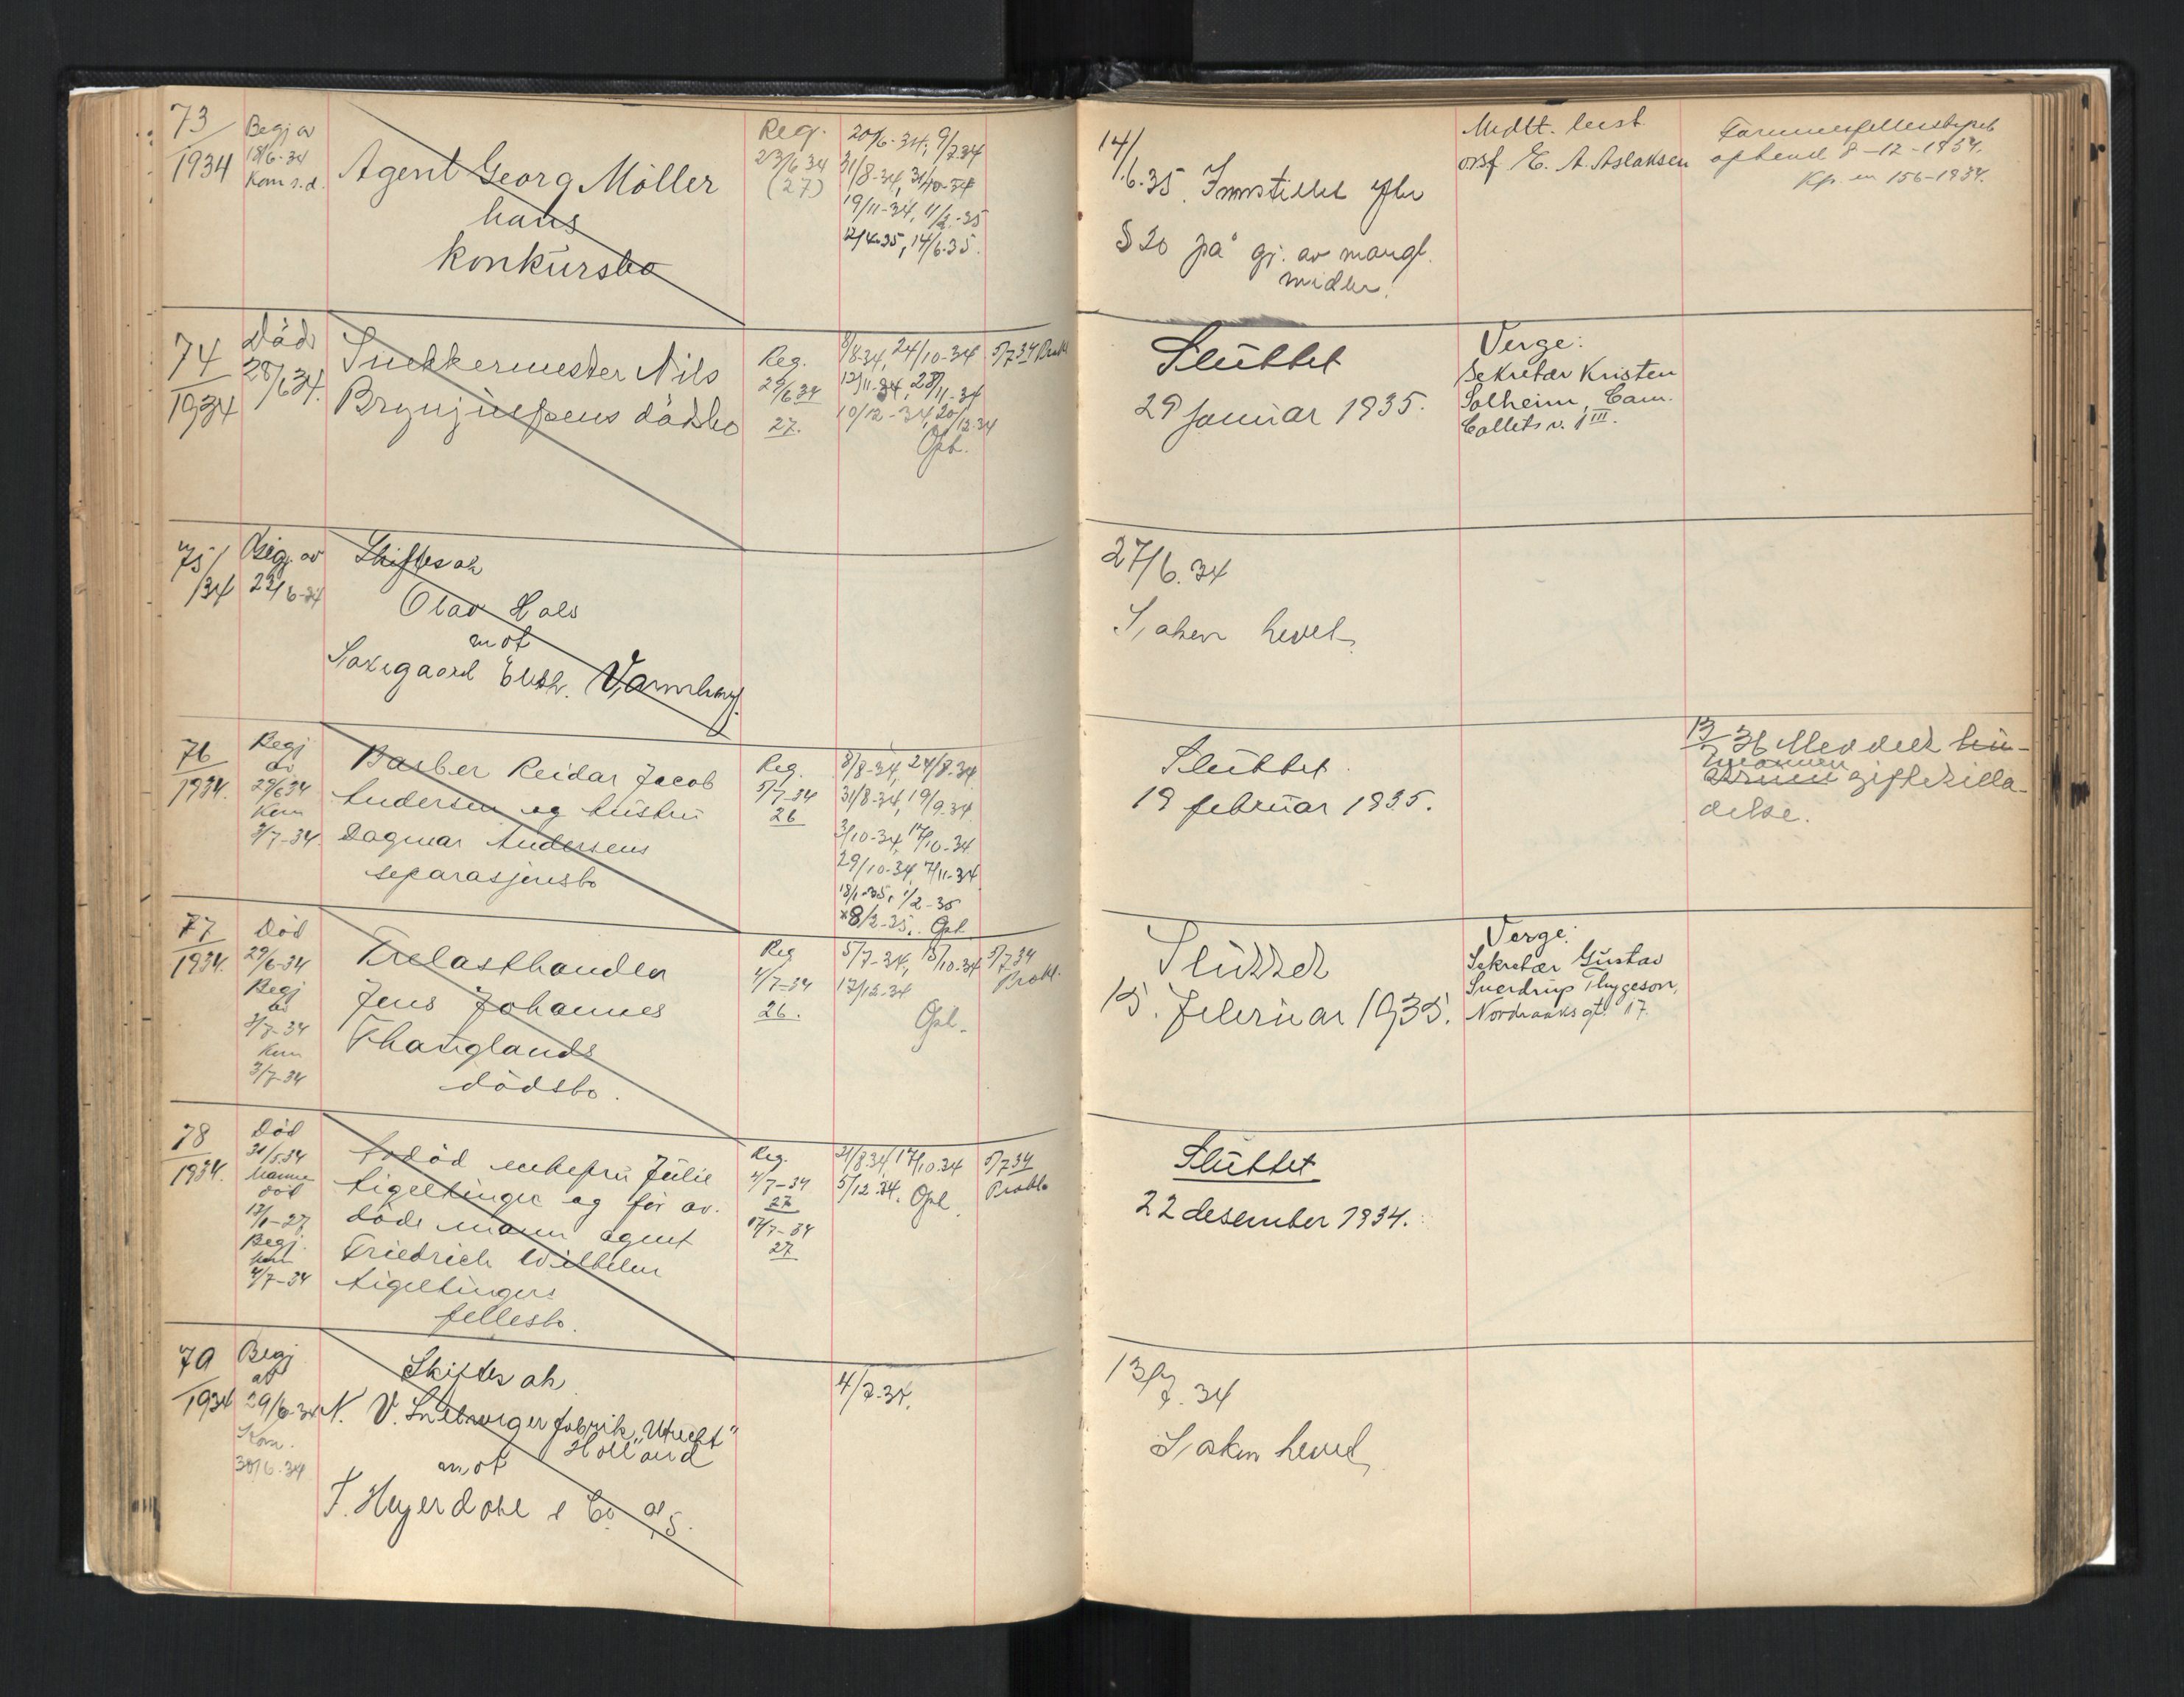 73
1934
Begj av
18/6-34
Kom s.d.
Agent Georg Möller
hans
konkursbo
Reg.
23/6 34
(27)
20/6-34, 9/7 34
31/8-34, 31/10-34
19/11-34, 4/2-35
12/4 35, 14/6 35.
14/
6.35. Innstillet efter
§ 20 på gr. av mangl.
midler.
Midlt. best.
orsf E. A. Aslaksen
Formuesfellesskapet
ophevet 8-12-1934.
Kfr. en 156-1934.
74
1934
Död
28/6 34.
Snekkermester Nils
Brynjulfsens dödsbo
Reg.
29/6 34
27.
8/8-34, 24/10-34
12/11-34, 28/11-34
10/12-34, 20/12-34
Opt.
5/7 34 Prokl
Sluttet
29 januar 1935.
Verge:
Sekretær Kristen
Solheim, Cam.
Colletts v. 1 III.
75/
/34
Begj. av
22/6-34
Skiftesak
Olav Hals
mot
Saxegaard Elektr. Varmhoy.
27/6.34
Saken hevet
76
1934.
Begj
av
29/6 34
Kom
3/7-34.
Barber Reidar Jacob
Andersen og hustru
Dagmar Andersens
separasjonsbo
Reg.
5/7-34
26
8/8-34, 24/8-34
31/8-34, 19/9 34.
3/10-34, 17/10-34
29/10-34, 7/11-34
18/1-35, 1/2-35
*8/2-35. Opl
Sluttet.
19 februar 1935.
13/7 36 Meddelt hu-
mannen
struen giftetilla-
delse.
77
1934.
Död
29/6-34
Begj
av
3/7-34
Kom
3/7-34
Trelasthandler
Jens Johannes
Thauglands
dödsbo.
Reg
4/7-34
26.
5/7-34, 15/10-34
17/12-34
Opl.
5/7 34
Prokl.
Sluttet
15. februar 1935.
Verge:
Sekretær Gustav
Sverdrup Thygeson,
Nordraaks gt. 17.
78
1934.
Död
31/5 34
Mannen
död
Begj.
kom
4/7-34
Avdöd enkefru Julie
Aigeltinger og för av.
döde mann agent
Friedrich Wilhelm
Aigeltingers
fellesbo.
Reg.
4/7-34
27
17/7-34
27
21/8 34, 17/10 34
5/12 34. Opl.
5/7 34
Prokl.
Sluttet
22 desember 1934.
79
1934
Begj
av
29/6-34
Kom.
30/6-34
Skiftesak
N. V. fabrik "Utrecht"
Holland
mot
T. Heyerdahl & Co a/s.
4/7-34.
13/7.34
Saken hevet